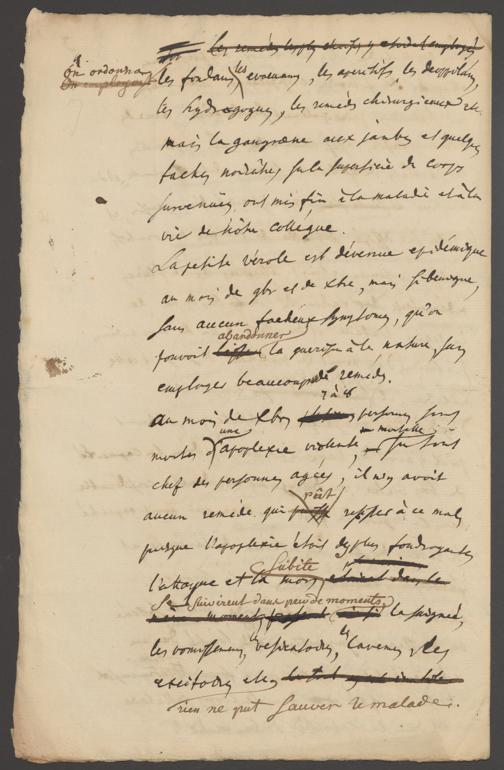 on ordonna
on employoit
les remedes les plus actifs y etoient employés
les fondans, les evacuans, les aperitifs, les deoppilans,
les hydragogues, les remedes chirurgicaux etc.
mais la gangraene aux jambes et quelques
taches noirâtres sur la superficie du corps
survenües, ont mis fin à la maladie et à la
vie de nôtre collégue.
La petite vérole est devenue epidémique
au mois de 9bre et de Xbre, mais si benigne,
sans aucun facheux symptome, qu'on
abandonner
pouvoit laisser la guerison à la nature, sans
employer beaucoup de remedes.
7 à 8
au mois de Xbre personnes sont
une mortelle
mortes d'apoplexie violente,
chef des personnes agées, il n'y avoit
pût
aucun remede qui resister à ce mal,
puisque l'apoplexie étoit des plus foudroyantes
subite
l'attaque et la mort etoient dans le
se suivirent dans peu de moments,
la saignée,
les vomissemens, les vesicatoires, les lavemens, les
excitatoires etc.
rien ne put sauver le malade.